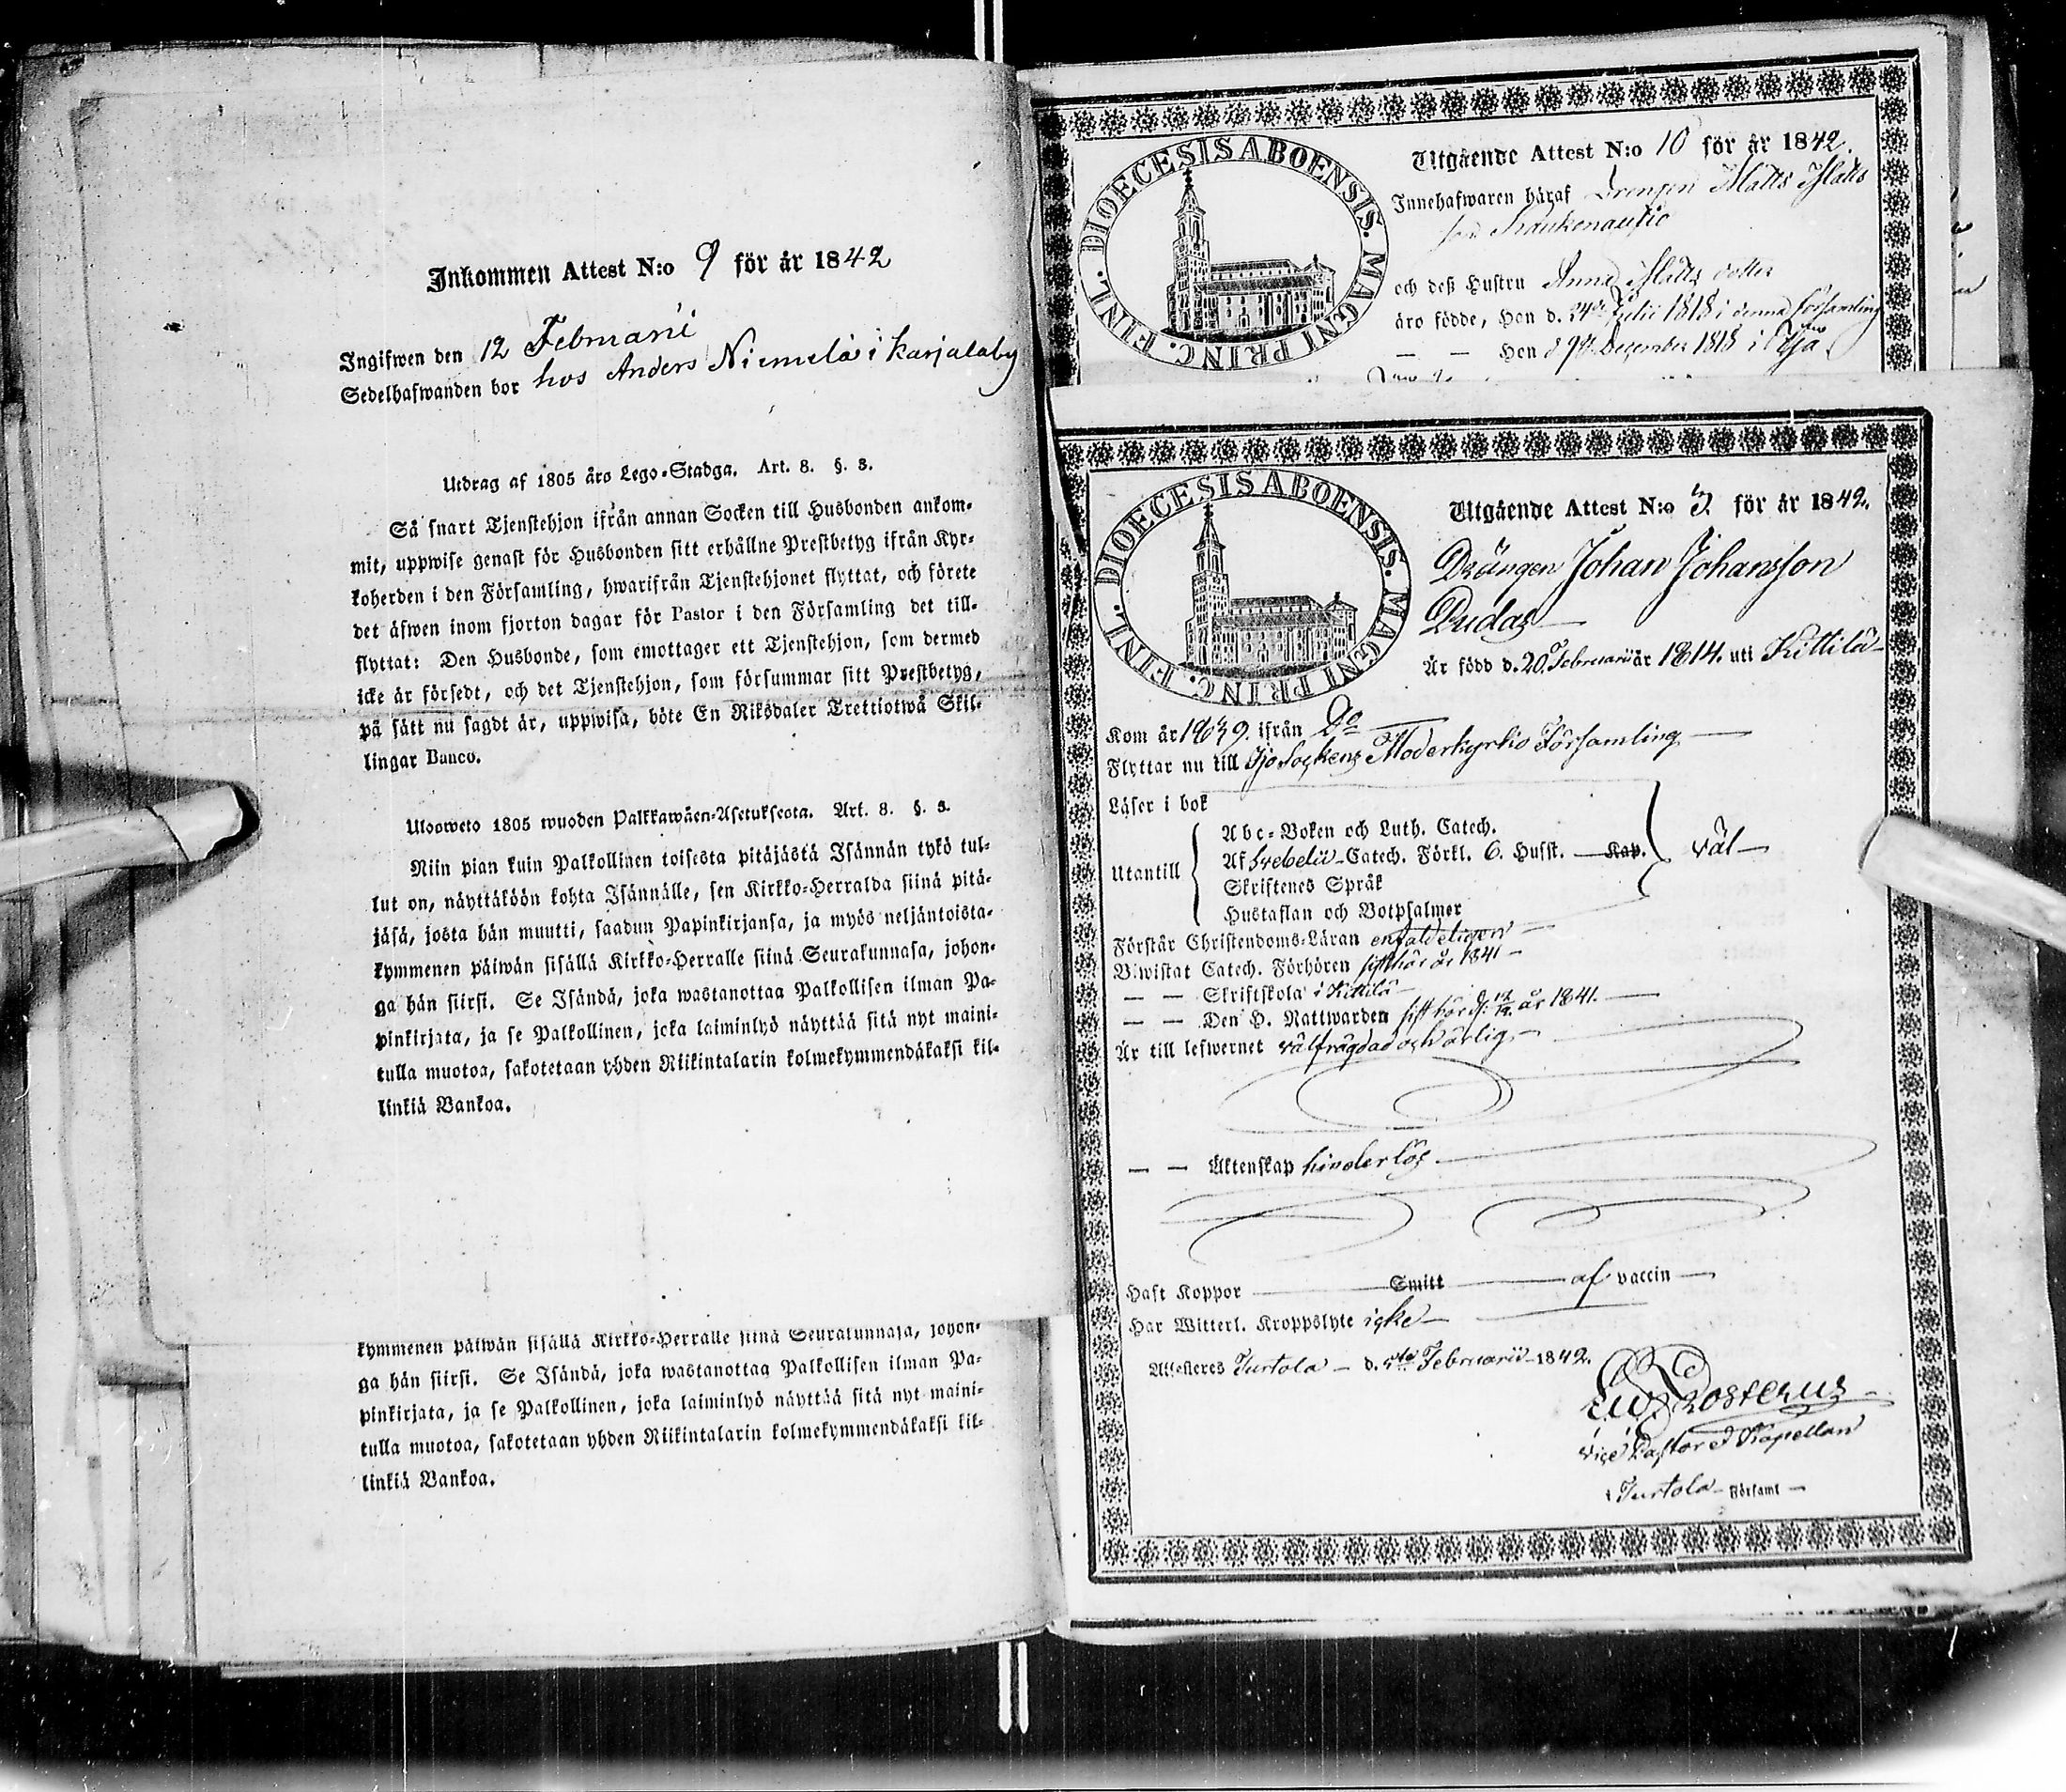 Inkommen Attest N:o 9 för år 1842
Ingifwen den 12 Februarii
Sedelhafwanden bor hos Anders Niemelä i Karjalaby
Utdrag af 1805 års Lego-Stadga. Art. 8. §. 3.
Så snart Tjenstehjon ifrån annan Socken till Husbonden ankom-
mit, uppwise genast för Husbonden sitt erhållne Prestbetyg ifrån Kyr-
koherden i den Församling, hwarifrån Tjenstehjonet flyttat, och förete
det äfwen inom fjorton dagar för Pastor i den Församling det till-
flyttat: Den Husbonde, som emottager ett Tjenstehjon, som dermed
icke är försedt, och det Tjenstehjon, som försummar sitt Prestbetyg,
på sätt nu sagdt är, uppwisa, böte En Riksdaler Trettiotwå Skil-
lingar Banco.
Ulooweto 1805 wuoden Palkkawäen-Asetuksesta. Art. 8. §. 3.
Niin pian kuin Palkollinen toisesta pitäjästä Isännän tykö tul-
lut on, näyttäköön kohta Isännälle, sen Kirkko-Herralda siinä pitä-
jäsä, josta hän muutti, saadun Papinkirjansa, ja myös neljäntoista-
kymmenen päiwän sisällä Kirkko-Herralle siinä Seurakunnasa, johon-
ga hän siirsi. Se Isändä, joka wastanottaa Palkollisen ilman Pa-
pinkirjata, ja se Palkollinen, joka laiminlyö näyttää sitä nyt maini-
tulla muotoa, sakotetaan yhden Riikintalarin kolmekymmendäkaksi kil-
linkiä Bankoa.
kymmenen päiwän sisällä Kirkko-Herralle siinä Seurakunnasa, johon-
ga hän siirsi. Se Isändä, joka wastanottaa Palkollisen ilman Pa-
pinkirjata, ja se Palkollinen, joka laiminlyö näyttää sitä nyt maini-
tulla muotoa, sakotetaan yhden Riikintalarin kolmekymmendäkaksi kil-
linkiä Bankoa.
DIOECESIS ABOENSIS. MAGNI PRINC. FINL.
Utgående Attest N:o 10 för år 1842.
Innehafwaren häraf Drengen Matts Matts
son
och deß Hustru Anna Matts dotter
äro födde, Han d. 24de Julii 1818 i denna församling
— — Hon d 9de December 1818 i
DIOECESIS ABOENSIS. MAGNI PRINC. FINL.
Utgående Attest N:o 3. för år 1842.
Drängen Johan Johansson
Dudas
Är född d. 20. Februarii år 1814. uti Kittilä
Kom år 1839. ifrån Do
Flyttar nu till Ijo Sockens Moderkyrko Församling
Läser i bok
Utantill
Abc-Boken och Luth. Catech.
Af Svebelii Catech. Förkl. 6. Hufst. — Kap.
Skriftenes Språk
Hustaflan och Botpsalmer
väl
Förstår Christendoms-Läran enfaldeligen
Biwistat Catech. Förhören sist här år 1841
— — Skriftskola i Kittilä
— — Den H. Nattwarden sist här d. 12/12 år 1841.
Är till lefwernet välfrägdad och ärlig
— — Äktenskap hinderlös
Haft Koppor Smitt af vaccin
Har Witterl. Kroppslyte icke
Attesteres Turtola d. 5te Februarii 1842.
Vice Pastor & Kapellan
i Turtola Församl